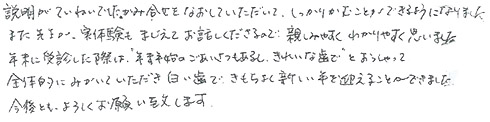 説明がていねいでしたかみ合せをなおしていただいて、しっかりかむことができるようになりました
また先生が、実体験もまじえてお話しくださるので親しみやすくわかりやすく思いました
年末に受診した際は、"年末年始のごあいさつもあるし、きれいな歯で"とおっしゃって
全体的にみがいていただき白い歯で、きもちよく新しい年を迎えることができました。
今後とも、よろしくお願い致します。